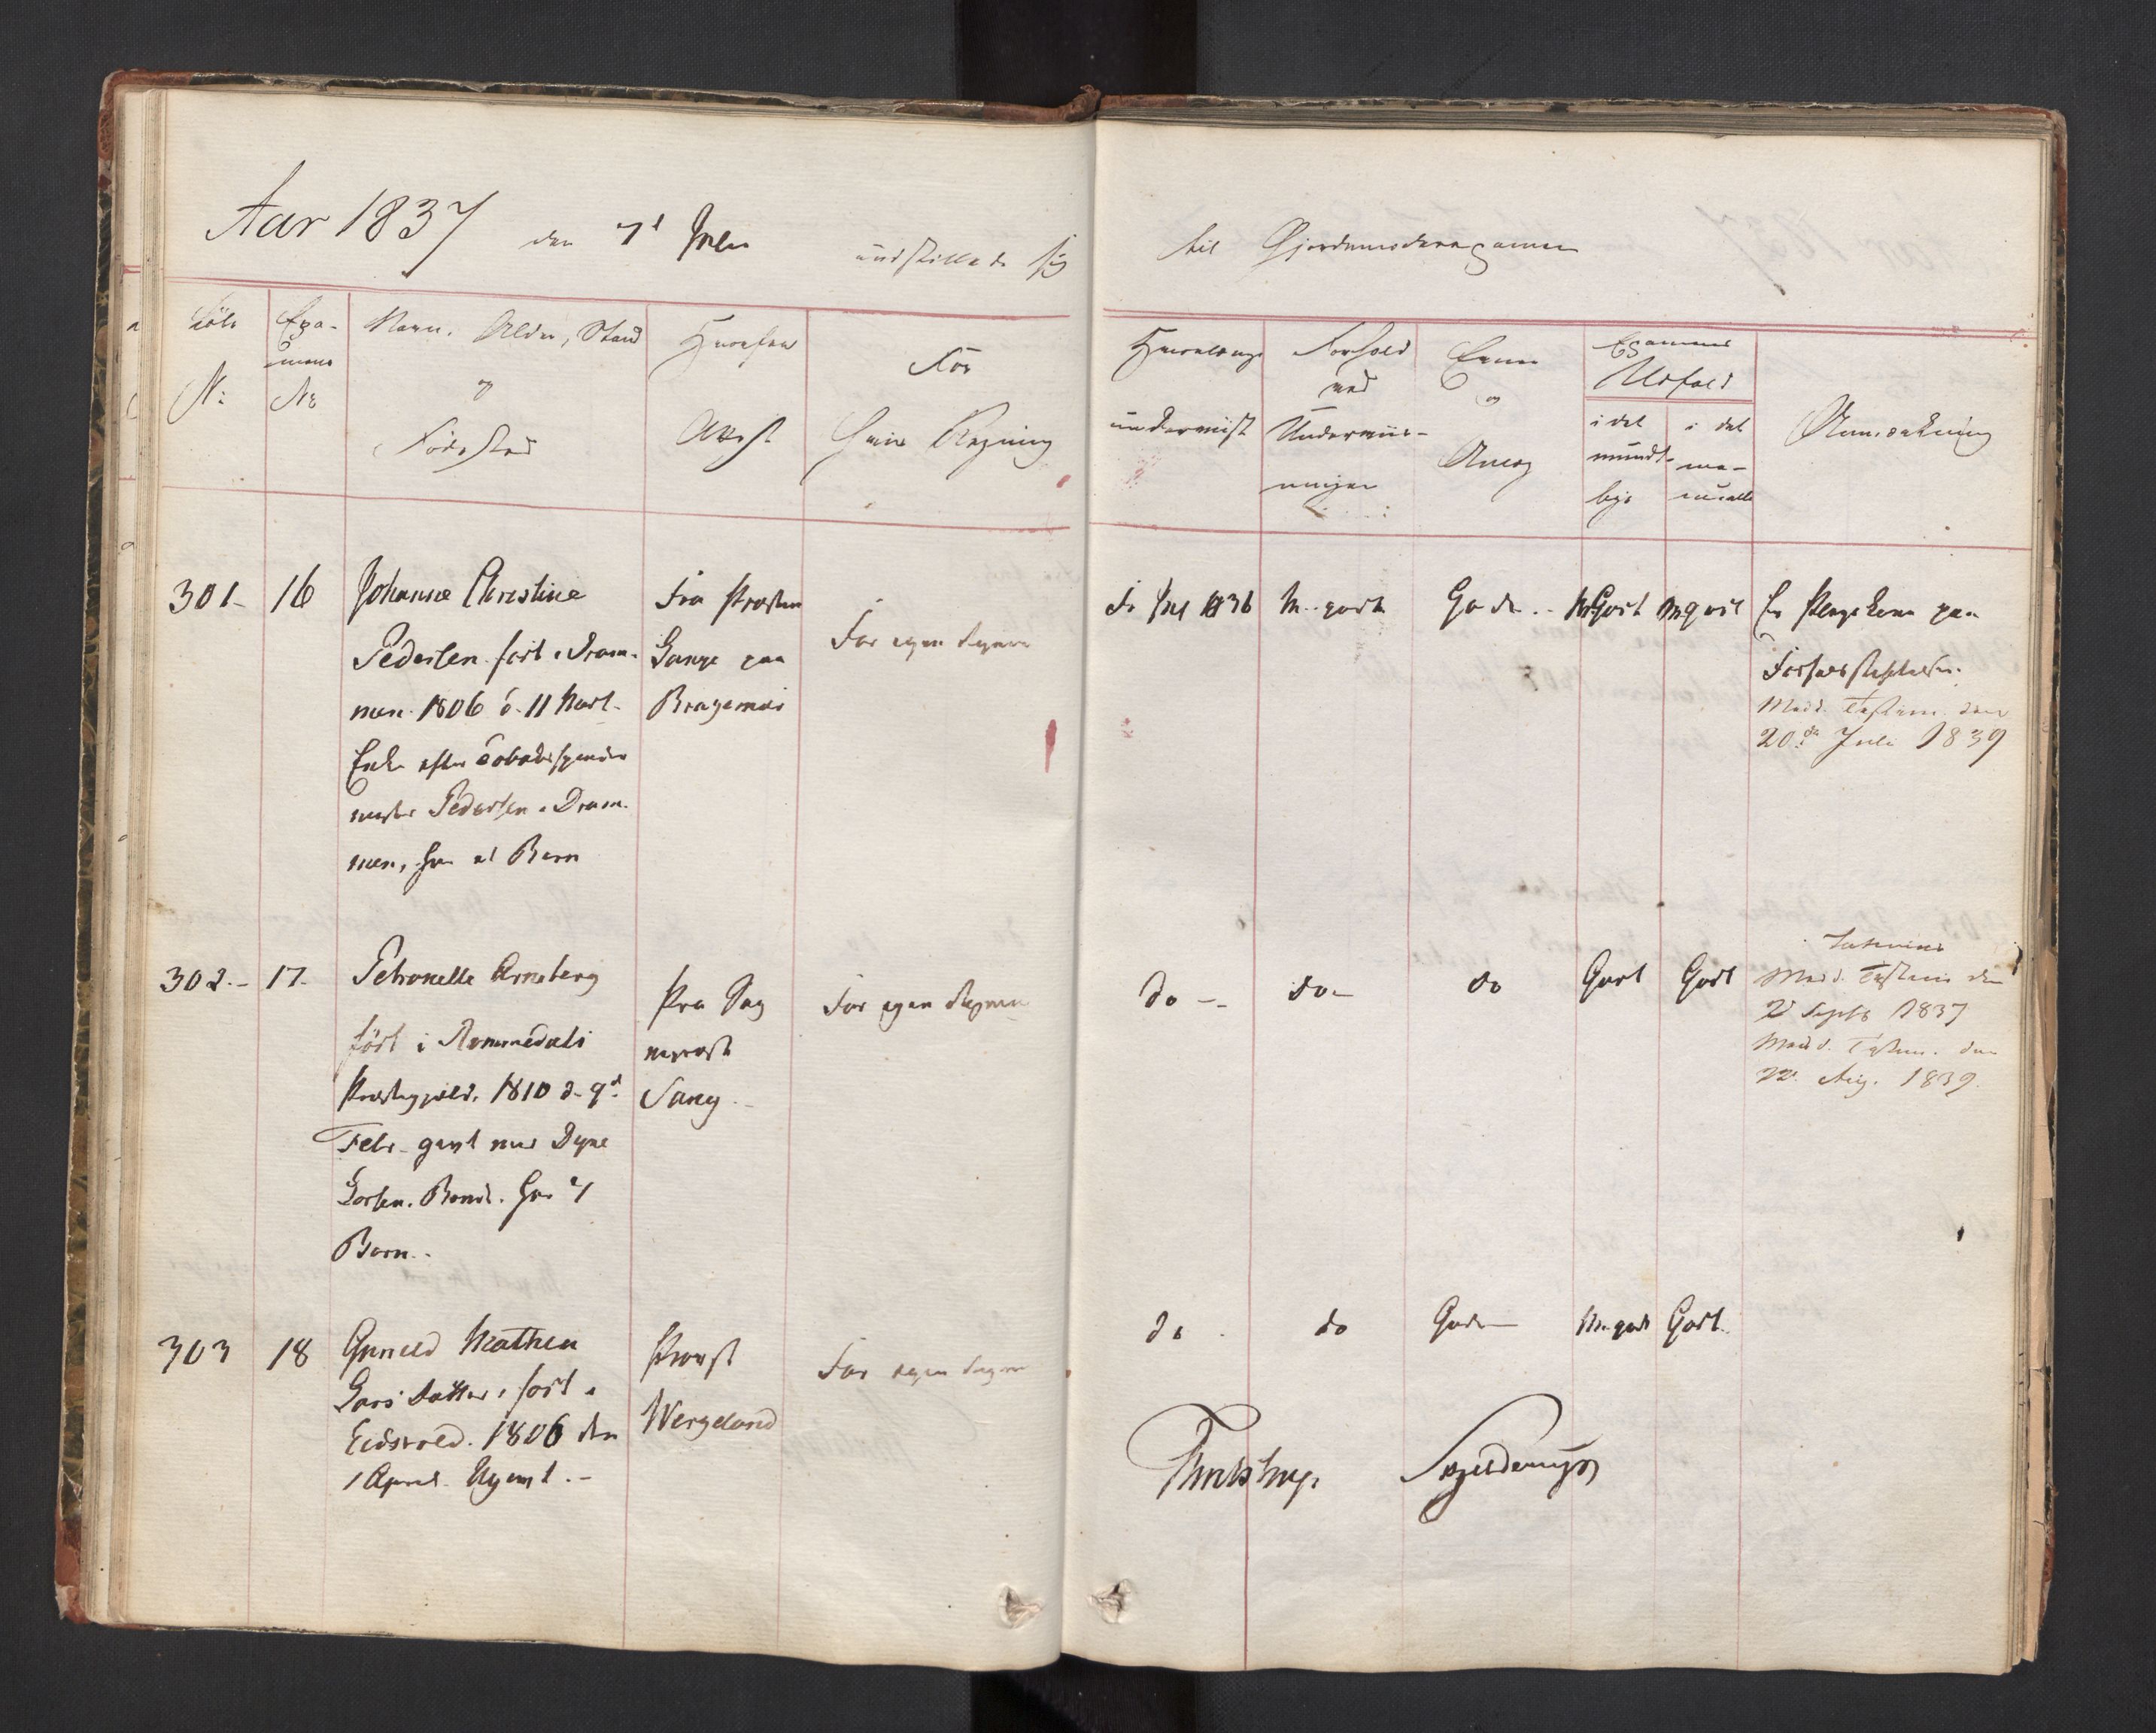 Aar 1837 den 7d Julii indstillede sig til Gjordemoderexamen
Løbe
No
Exa-
mens
No
Navn, Alder, Stand
og
Fødested
Hvorfra
Attest
For
hvis Regning
Hvorlænge
underviist
Forhold
ved
Underviis-
ningen
Evner
og
Anlæg
Examens
Udfald
i det
mundt-
lige
i det
ma-
nuelle
Anmærkning
301- 16
Johanne Christine
Pedersen født i Dram-
men 1806 d. 11 Mart.
Enke efter Tobakspinder
mester Pedersen i Dram-
men, har et Barn
Fra Præsten
Lange paa
Bragernæs
For egen Regning
M. godt
Gode
M Godt
M godt
Er Pleyekone paa
Fødselsstiftelsen.
Medd. Testim. den
20de Juli 1839
302.- 17-
Petronelle Arneberg
født i Rommedals
Præstegjeld. 1810 d. 9d
Febr. givt med
Larsen. Bonde. har 4
Børn.
Fra Sog
nepræst
Lang
For egen Regning
do -
do -
do
Godt
Godt
Medd. Testim. den
2 Septb 1837
Medd. Testim. den
22. Aug. 1839.
303 18
Gunild Mathea
Lars datter, født i
Eidsvold. 1806 den
1 April. Ugivt.-
Provst
Wergeland
For egen Regning
do
do
Gode
M. godt
Godt.
Thulstrup